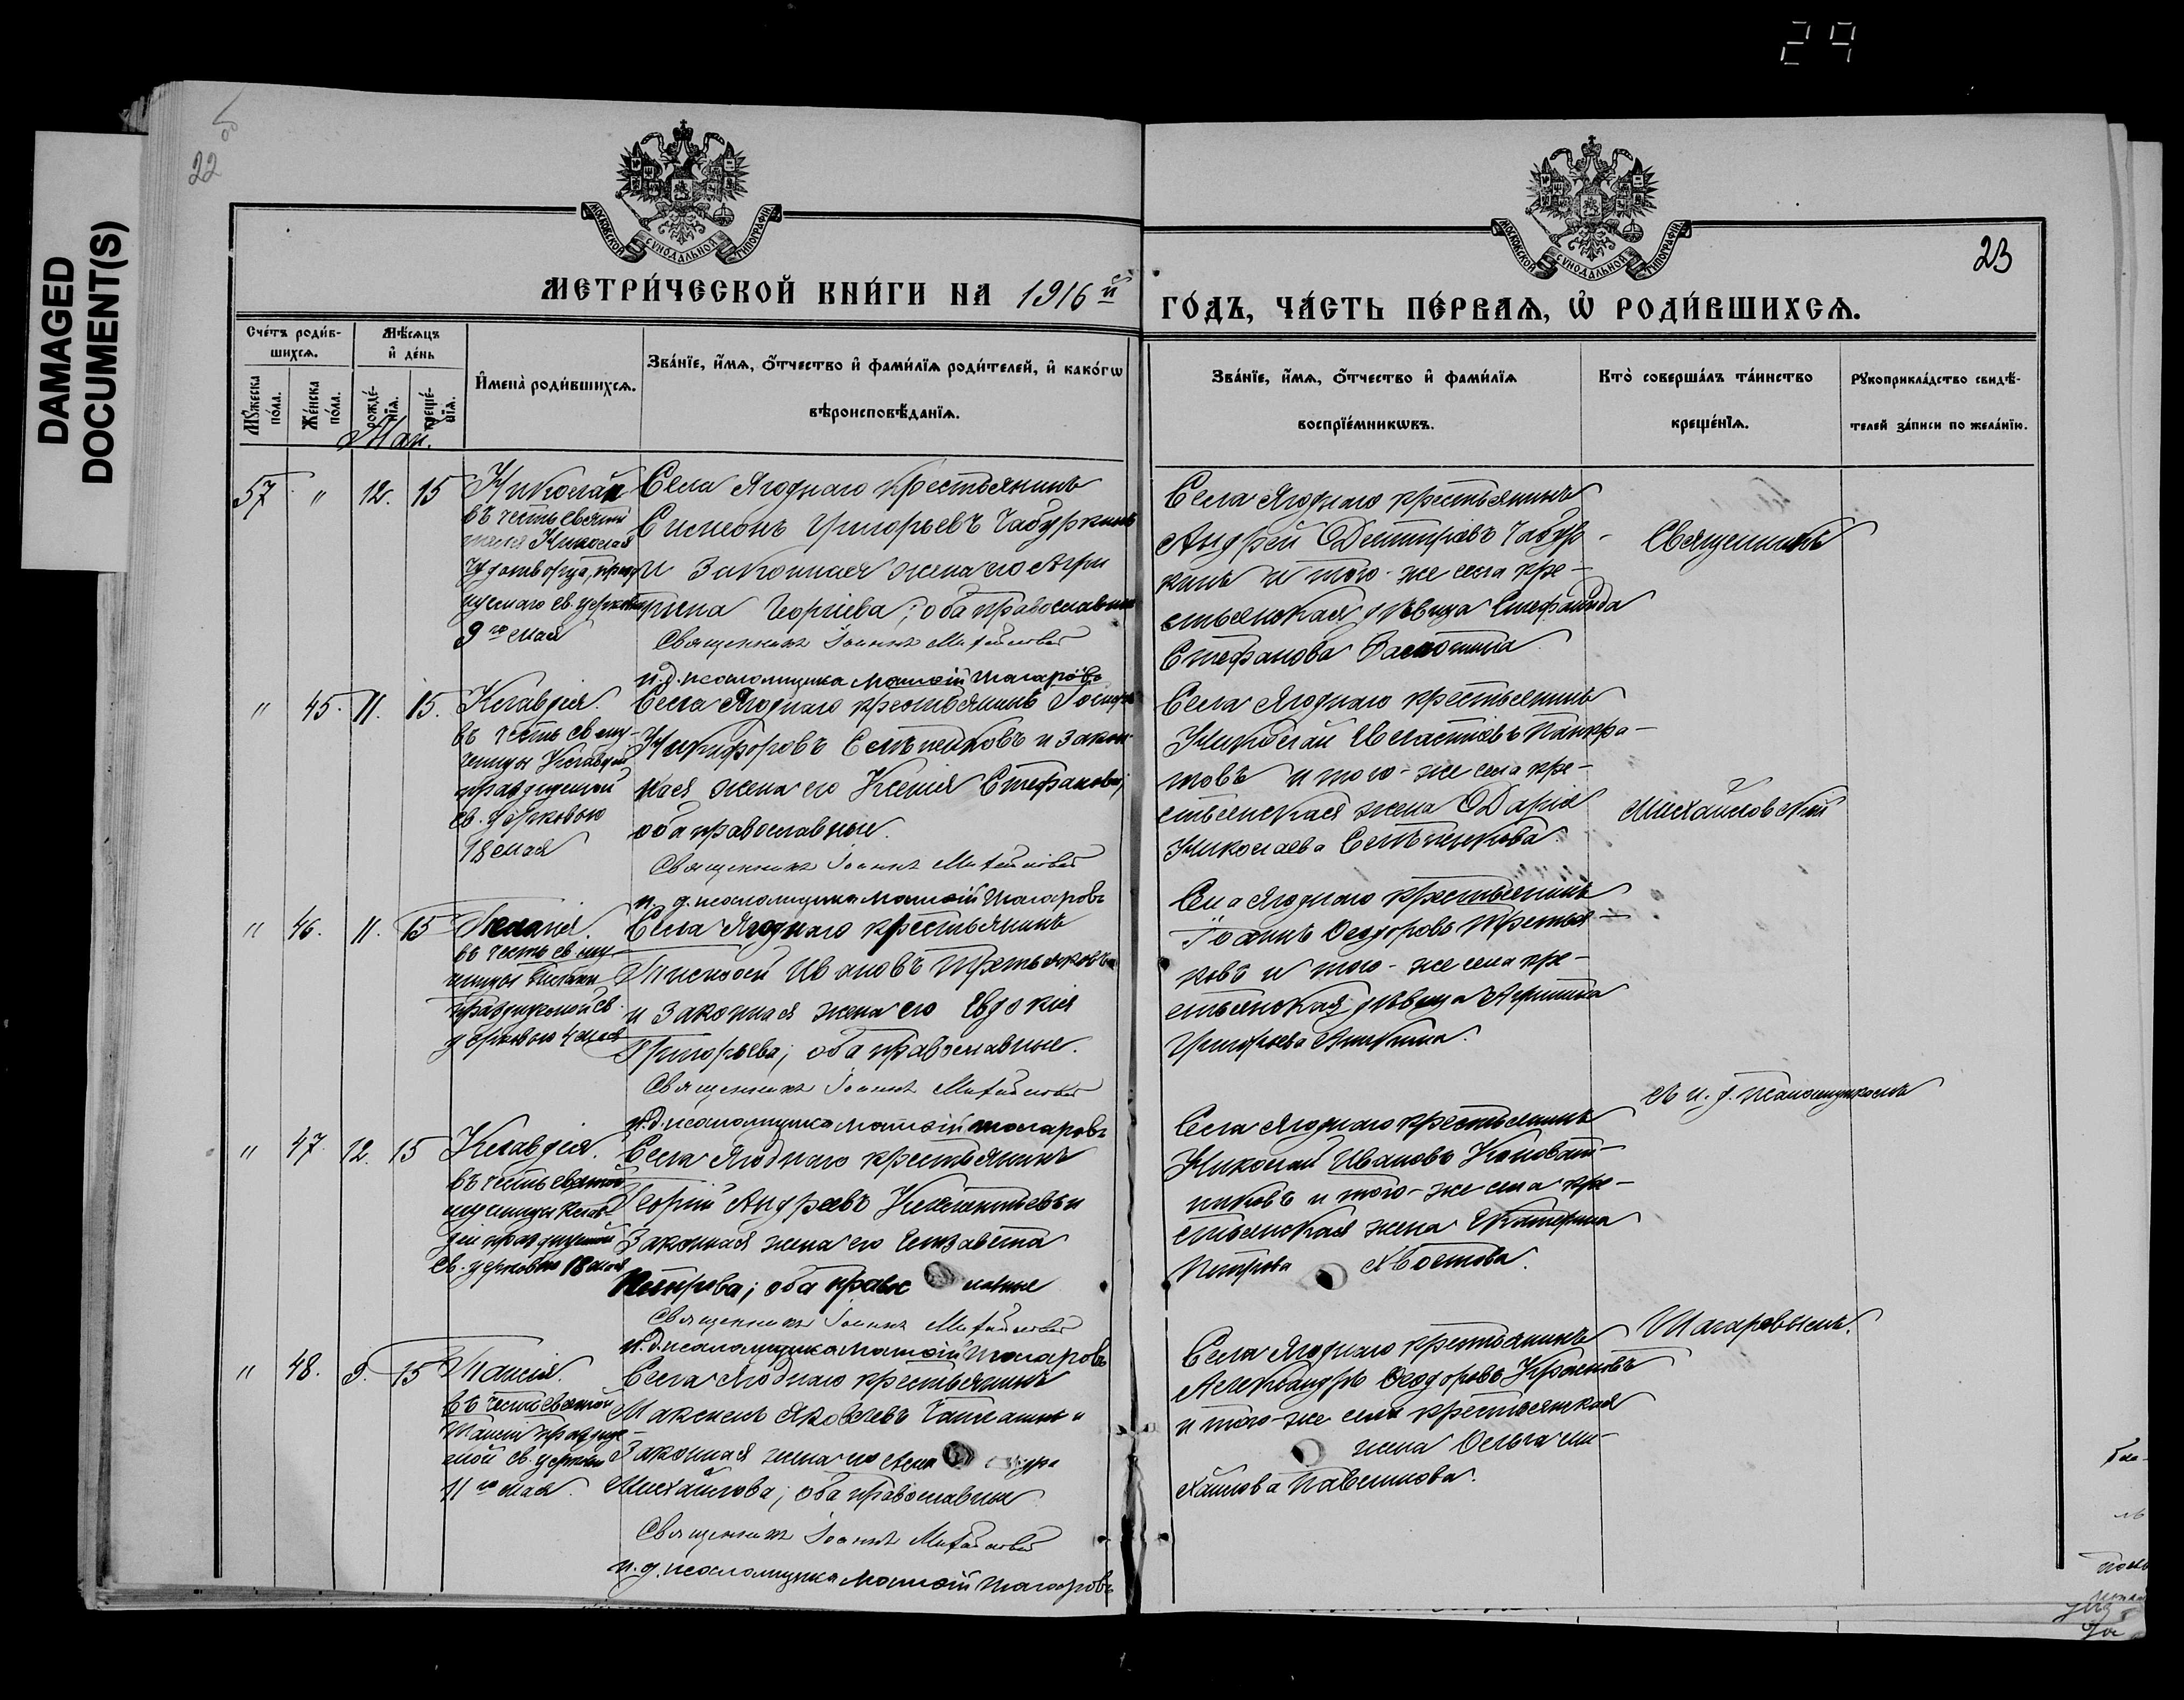 29
DAMAGED
DOCUMENT(S)
22
23
МОСКОВСКОЙ СѴНОДАЛЬНОЙ ТИПОГРАФІИ
МОСКОВСКОЙ СѴНОДАЛЬНОЙ ТИПОГРАФІИ
МЕТРИ́ЧЕСКОЙ КНИ́ГИ НА 1916й
ГО́ДЪ, ЧА́СТЬ ПЕ́РВАѦ, Ѡ҆ РОДИ́ВШИХСѦ.
Сче́тъ роди́в-
шихсѧ.
Мѣ́сѧцъ
и҆ де́нь
Мꙋ́жеска
по́ла.
Же́нска
по́ла.
рожде́-
нїѧ.
креще́-
нїѧ.
И҆мена̀ роди́вшихсѧ.
Зва́нїе, и҆́мѧ, ѻ҆́тчество и҆ фами́лїѧ роди́телей, и҆ како́гѡ
вѣроисповѣ́данїѧ.
Зва́нїе, и҆́мѧ, ѻ҆́тчество и҆ фами́лїѧ
воспрїе́мникѡвъ.
Кто̀ соверша́лъ та́инство
креще́нїѧ.
Рꙋкоприкла́дство свидѣ́-
телей за́писи по жела́нїю.
Май.
57 " 12. 15
Николай
въ честь святи
теля Николая
чудотворца, празд
нуемаго св. церковью
9го мая
Села Ягоднаго крестьянинъ
Симеонъ Григорьевъ Чабуркинъ
и законная жена его Агри
пина Георгіева; оба православные
Священникъ Іоаннъ Михайловскій
и. д. псаломщика Матѳій Шагаровъ
Села Ягоднаго крестьянинъ
Андрей Димитріевъ Чабур-
кинъ и того-же села кре-
стьянская дѣвица Стефанида
Стефанова
Священникъ
" 45. 11. 15.
Клавдія.
въ честь св. му-
ченицы Клавдіи
празднуемой
св. церковью
18 мая
Села Ягоднаго крестьянинъ Іосифъ
Никифоровъ Семѣйкинъ и закон
ная жена его Ксенія Стефанова;
оба православные.
Священникъ Іоаннъ Михайловскій
и. д. псаломщика Матѳій Шагаровъ
Села Ягоднаго крестьянинъ
Николай Панкра-
товъ и того-же села кре-
стьянская жена Дарія
Николаева
Михайловскій
" 46. 11. 15
Пелагія.
въ честь св. му
ченицы
празднуемой св.
церковью 4 мая
Села Ягоднаго крестьянинъ
Алексѣй Ивановъ Третьяковъ
и законная жена его Евдокія
Григорьева; оба православные.
Священникъ Іоаннъ Михайловскій
и. д. псаломщика Матѳій Шагаровъ
Села Ягоднаго крестьянинъ
Іоаннъ Ѳеодоровъ Третья-
ковъ и того-же села кре-
стьянская дѣвица Агрипина
Григорьева Аникина.
съ и. д. псаломщикомъ
" 47. 12. 15
Клавдія.
въ честь святой
мученицы Клав-
діи празднуемой
св. церковью 18 мая
Села Ягоднаго крестьянинъ
Георгій Андреевъ и
законная жена его Елизавета
Петрова; оба правос лавные
Священникъ Іоаннъ Михайловскій
и. д. псаломщика Матѳій Шагаровъ
Села Ягоднаго крестьянинъ
Николай Ивановъ Коноват-
никовъ и того-же села кре-
стьянская жена Екатерина
Петрова Хвостова.
" 48. 9. 15
Таисія.
въ честь святой
Таисіи праздну-
мой св. церковью
11го мая.
Села Ягоднаго крестьянинъ
Максимъ Яковлевъ и
законная жена его
Михайлова; оба православные
Священникъ Іоаннъ Михайловскій
и. д. псаломщика Матѳій Шагаровъ
Села Ягоднаго крестьянинъ
Александръ Ѳеодоровъ Красновъ
и того-же села крестьянская
жена Ольга Ми-
хайлова Павлинова.
Шагаровымъ.